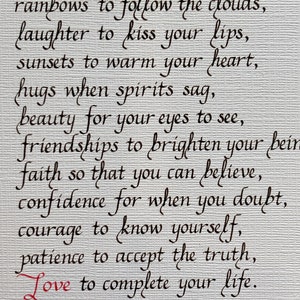 rainbows to follow the clouds,
laughter to kiss your lips,
sunsets to warm your heart,
hugs when spirits sag,
beauty for your eyes to see,
friendships to brighten your bein
faith so that you can believe,
confidence for when you doubt,
courage to know yourself,
patience to accept the truth,
Love to complete your life.